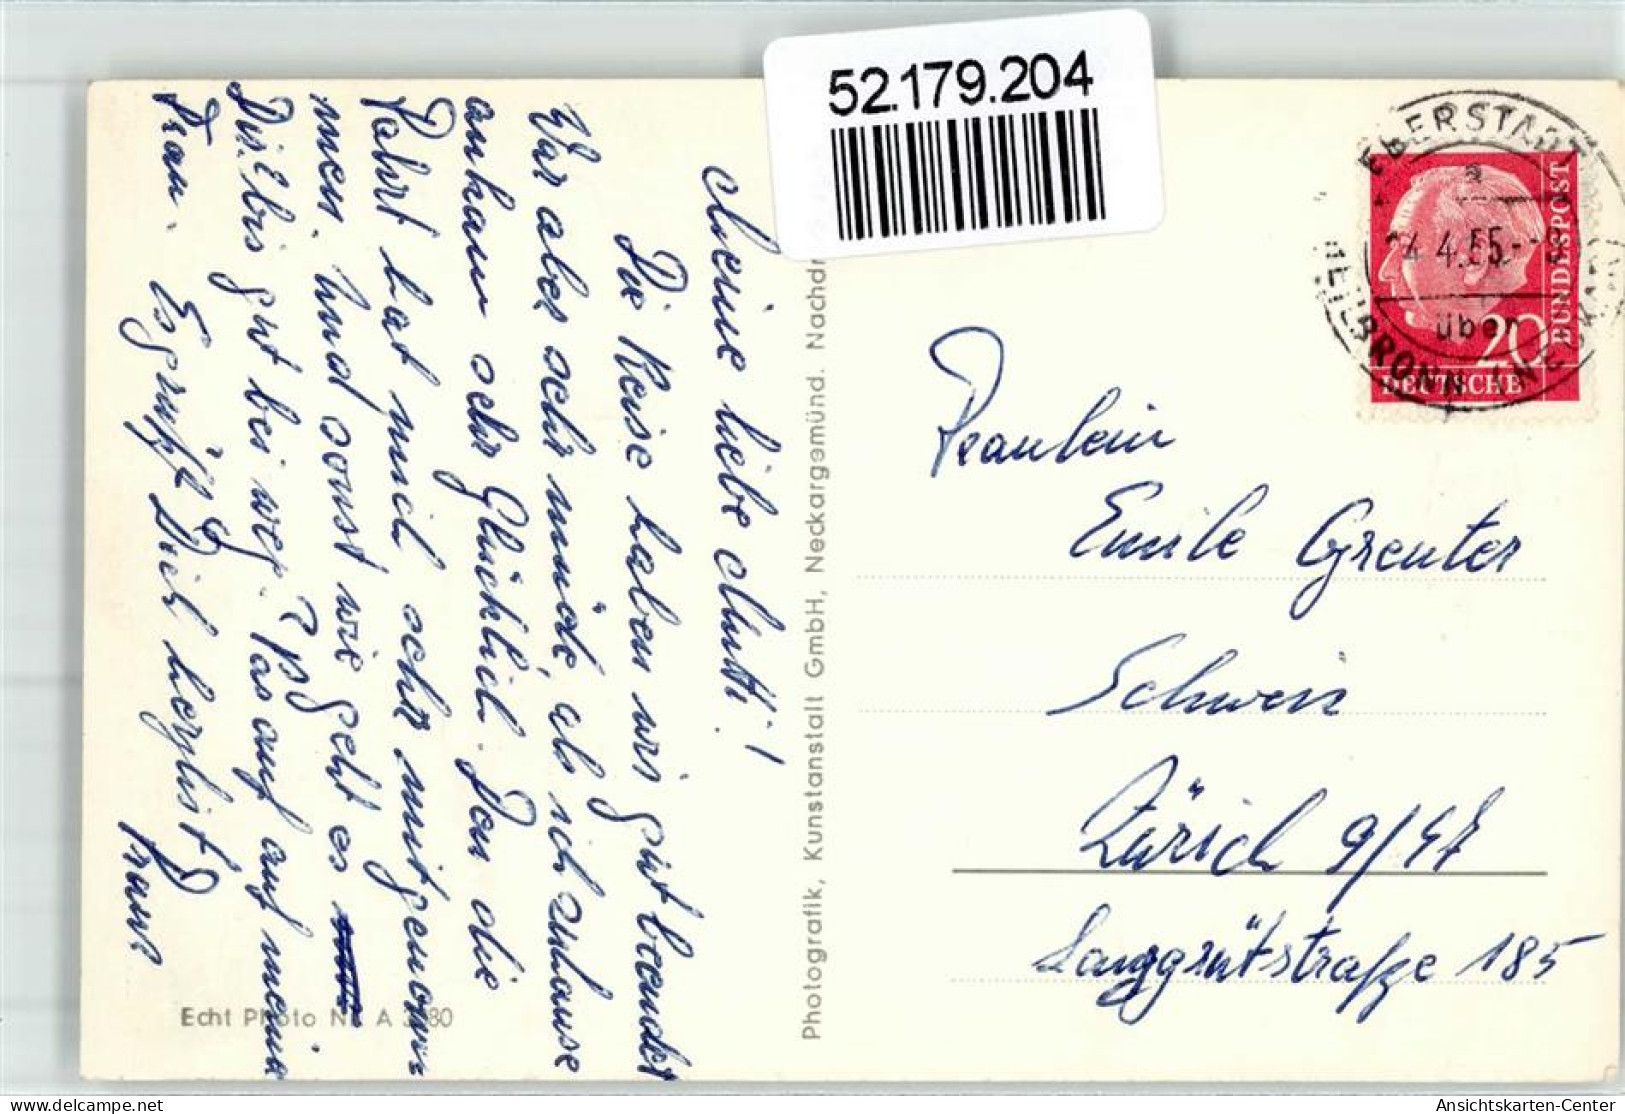 52.179.204
Meine liebe Mutti!
Die Reise haben wir gut beendet
War aber sehr müde, als ich zuhause
ankam sehr Glücklich. Den die
Fahrt hat mich sehr mitgenom
men. Und sonst wie geht es
Dir? Es gut bei weg. Pas auf auf meine
Frau. Es grüßt Dich herzlist
Franz
Echt Photo Nr. A 3180
Photografik, Kunstanstalt GmbH, Neckargemünd. Nachdr
EBERSTADT
a
4.4.55.--8
über
HEILBRONN (NECKAR)
DEUTSCHE
BUNDESPOST
20
Fräulein
Emile Greuter
Schweiz
Zürich 9/47
Langgrütstraße 185
delcampe.net
Ansichtskarten-Center